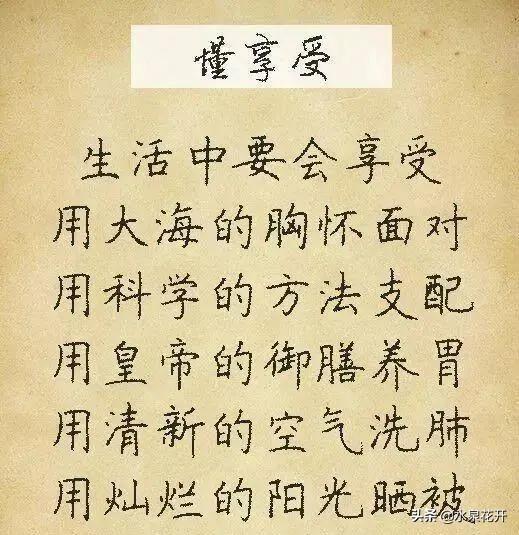 懂享受
生活中要会享受
用大海的胸怀面对
用科学的方法支配
用皇帝的御膳养胃
用清新的空气洗肺
用灿烂的阳光晒被
头条@水泉花开